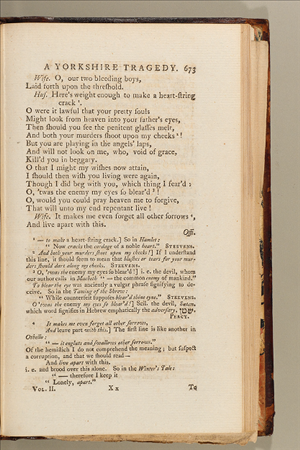 A YORKSHIRE TRAGEDY. 673
Wife. O, our two bleeding boys,
Laid forth upon the threshold.
Hus. Here's weight enough to make a heart-string
crack.
O were it lawful that your pretty souls
Might look from heaven into your father's eyes,
Then should you see the penitent glasses melt,
And both your murders shoot upon my cheeks!
But you are playing in the angels' laps,
And will not look on me, who, void of grace,
Kill'd you in beggary.
O that I might my wishes now attain,
I should then wish you living were again,
Though I did beg with you, which thing I fear'd:
O, 'twas the enemy my eyes so blear'd!
O, would you could pray heaven me to forgive,
That will unto my end repentant live!
Wife. It makes me even forget all other sorrows,
And live apart with this.
Off.
— to make a heart-string crack.] So in Hamlet:
"Now cracks the cordage of a noble heart." STEEVENS.
And both your murders shoot upon my cheeks!] If I understand
this line, it should seem to mean that
STEEVENS.
O, 'twas the enemy my eyes so blear'd!] i. e. the devil, whom
our author calls in Macbeth "— the common enemy of mankind."
To blear the eye was anciently a vulgar phrase signifying to de-
ceive. So in the Taming of the Shrew:
"While counterfeit supposes blear'd thine eyne." STEEVENS.
O 'twas the enemy my eyes so blear'd!] Scil. the devil, Satan,
which word signifies in Hebrew emphatically the adversary, שטן.
PERCY.
It makes me even forget all other sorrows,
And leave part with this.] The first line is like another in
Othello:
"— it engluts and swallows other sorrows."
Of the hemistich I do not comprehend the meaning; but suspect
a corruption, and that we should read—
And live apart with this.
i. e. and brood over this alone. So in the Winter's Tale:
"— therefore I keep it
"Lonely, apart."
VOL. II. X x To